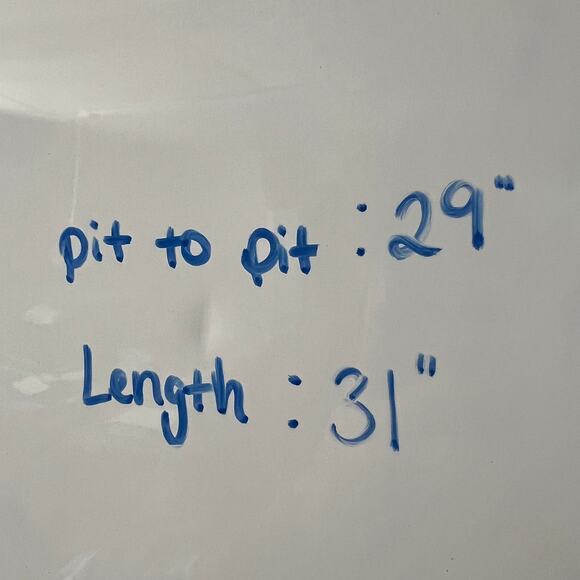 pit to pit : 29"
Length : 31"